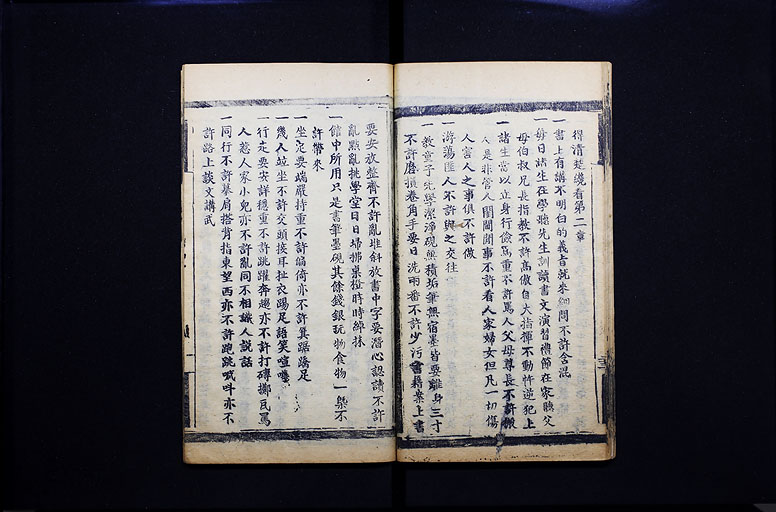 得清楚纔看第二章
一書上有講不明白的義音就來細問不許含混
一每日諸生在學聽先生訓讀書文演習禮節在家聽父
母伯叔兄長指教不許高傲自大指揮不動忤逆犯上
一諸生當以立身行儉篤重不許罵人父母尊長不許搬
人是非管人閨閫閒事不許看人家婦女但凡一切傷
人害人之事俱不許做
一游蕩匪人不許與之交往
一教童子先學潔淨硯無積垢筆無宿墨皆要離身三寸
不許磨損卷角手要日洗兩番不許少污書籍案上書
要安放整齊不許亂堆斜放書中字要潛心認讀不許
亂點亂挑學堂日日埽拂棹櫈時時繂抹
一館中所用只是書筆墨硯其餘錢銀玩物食物一槩不
許帶來
一坐定要端嚴持重不許偏倚亦不許箕踞蹻足
一幾人竝坐不許交頭接耳扯衣踢足語笑喧嘩
一行走要安詳穩重不許跳躍奔趨亦不許打磚擲瓦罵
人惹人家小兒亦不許亂同不相識人說話
一同行不許摹肩搭背指東望西亦不許跑跳喊呌亦不
許路上談文講武